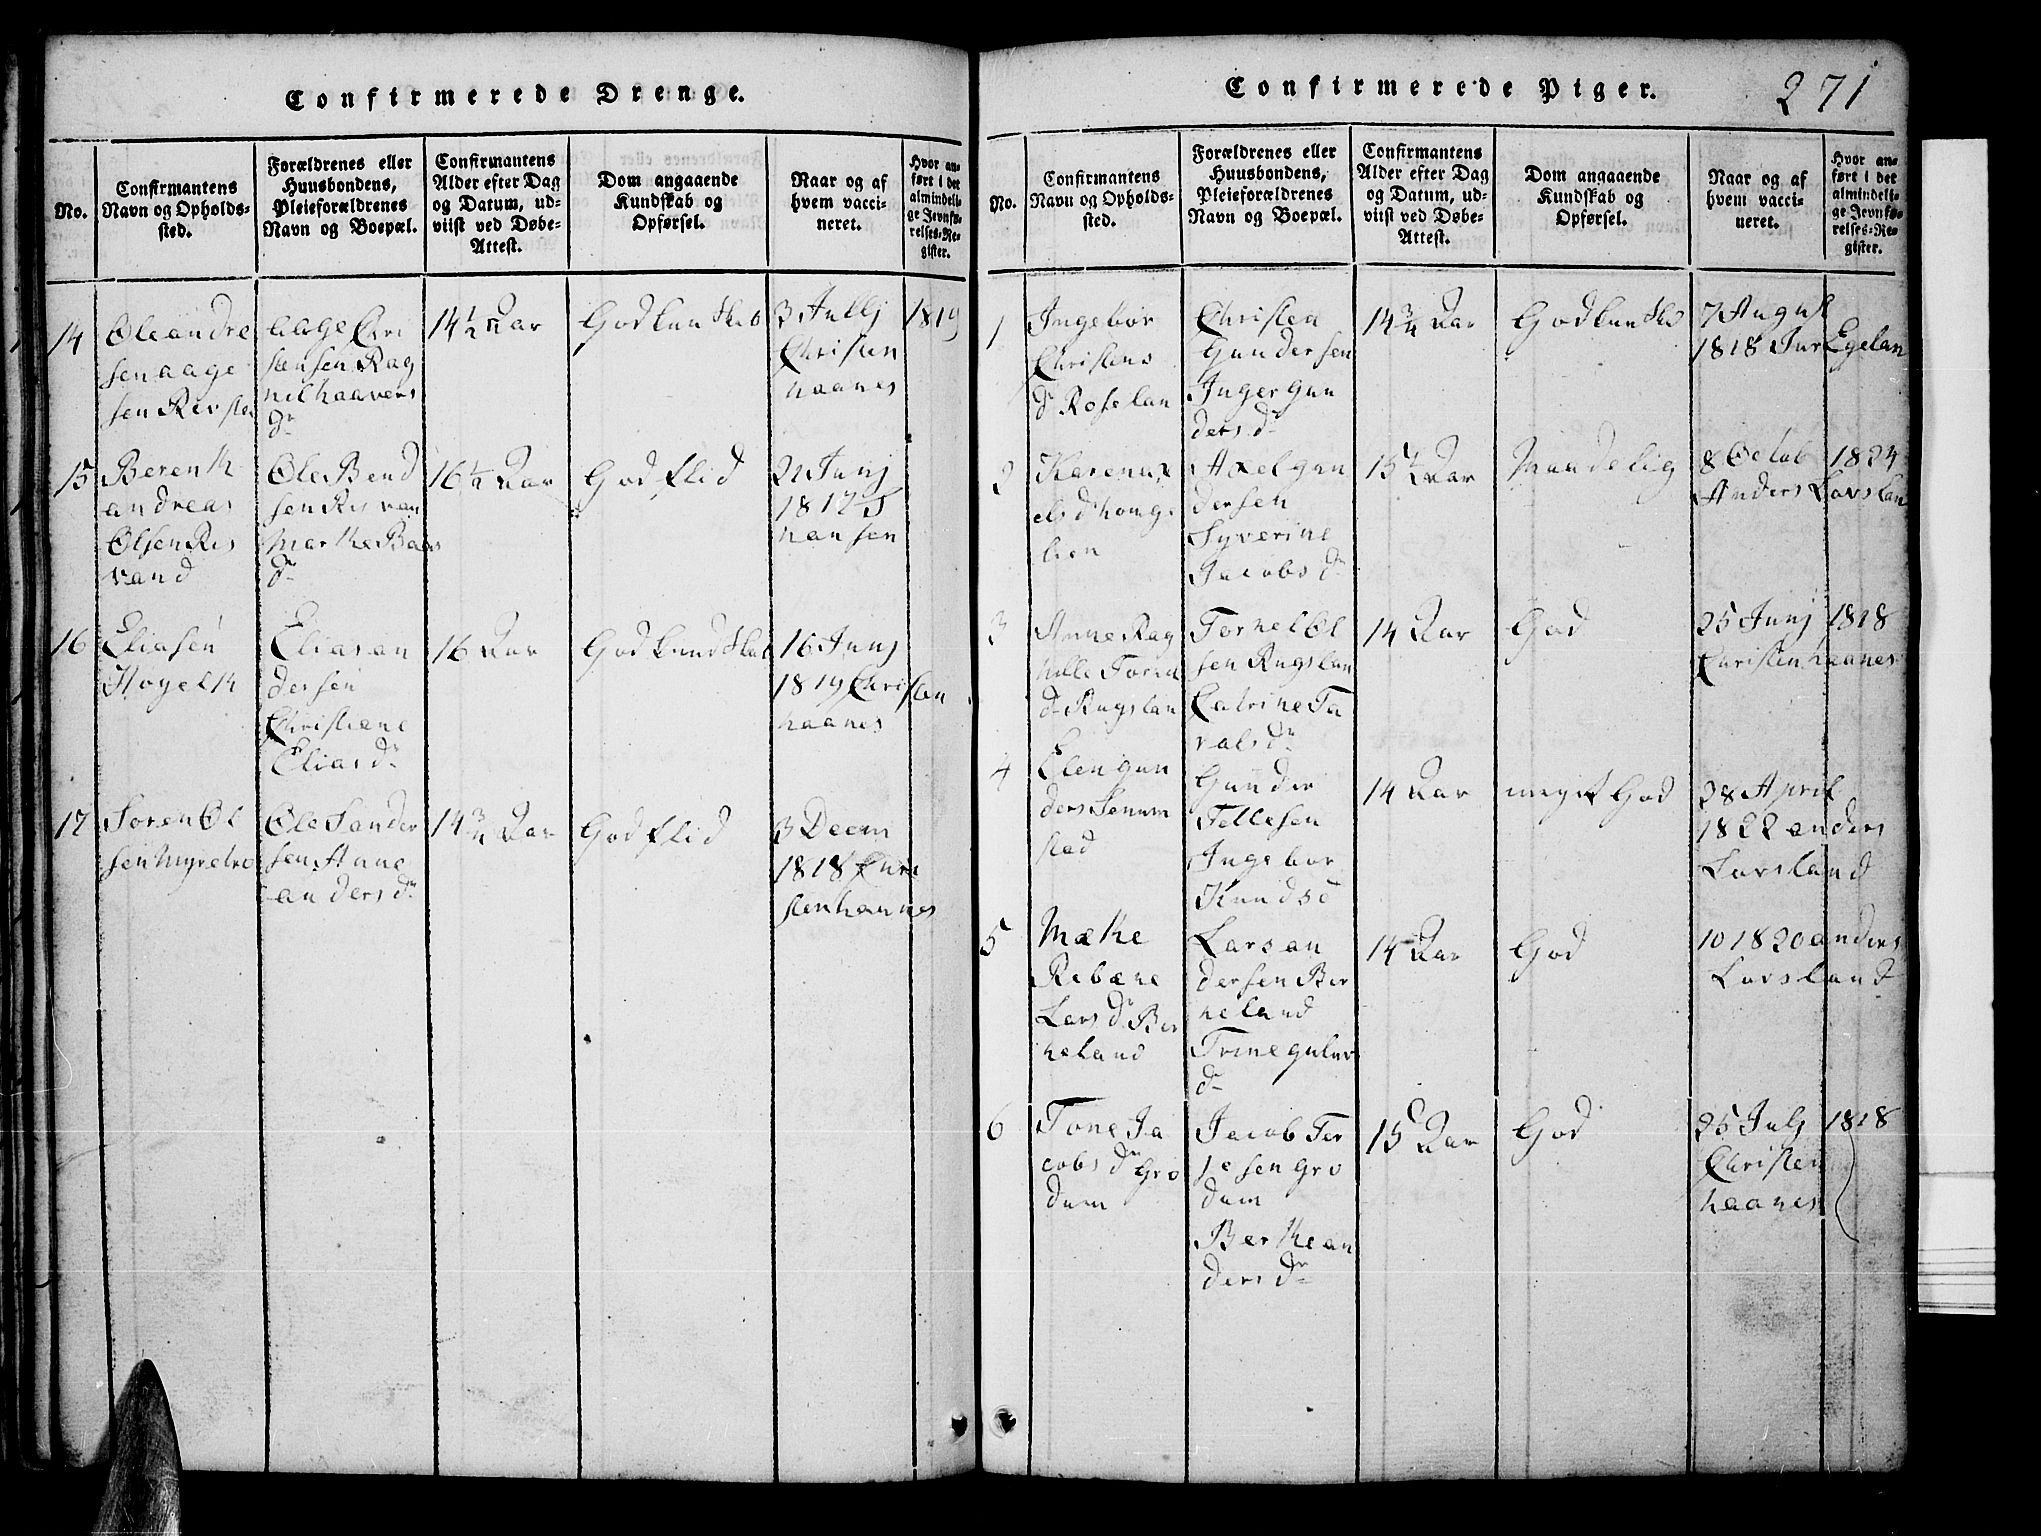 Confirmerede Drenge.
No.
Confirmantens
Navn og Opholds-
sted.
Forældrenes eller
Huusbondens,
Pleieforældrenes
Navn og Boepæl.
Confirmantens
Alder efter Dag
og Datum, ud-
viist ved Døbe-
Attest.
Dom angaaende
Kundskab og
Opførsel.
Naar og af
hvem vacci-
neret.
Hvor an-
ført i det
almindeli-
ge Jevnfø-
relses-Re-
gister.
14
Ole andre
sen aage
sen
aage Chri
stensen Rag
nil haavors
dr
14 1/2 Aar
God kunskab
3 Jullj 1819
Christen
haanes
15
Berenth
andreas
Olsen Ris
vand
Ole Bend
sen Risvan
Marthe Baars
dr
16 1/2 Aar
God flid
21 Junj
1812 J
hansen
16
Eliasen
Høyelth
Elias an
dersen
Christiane
Elias dr
16 Aar
God kundskab
16 Junj
1819 Christen
haanes
17
Søren Ol
sen Myrebro
Ole Sander
sen Anne
anders dr
14 3/4 Aar
God flid
3 Decm
1818 Chri
sten haanes
Confirmerede Piger.
271
No.
Confirmantens
Navn og Opholds-
sted.
Forældrenes eller
Huusbondens,
Pleieforældrenes
Navn og Boepæl.
Confirmantens
Alder efter Dag
og Datum, ud-
viist ved Døbe-
Attest.
Dom angaaende
Kundskab og
Opførsel.
Naar og af
hvem vacci-
neret.
Hvor an-
ført i det
almindeli-
ge Jevnfø-
relses-Re-
gister.
1
Ingebor
Christens
d Roselan
Christen
Gundersen
Inger gun
ders dr
14 3/4 Aar
God kunsks
7 August
1818 Egelan
2
Karen ax
els d homs
lien
Axel gun
dersen
Syverine
Jacobs dr
15 1/2 Aar
Maadelig
8 Octob 1824
Anders Lavslan
3
Anne Rag
hille
d Rugslan
Tornel Ol
sen Rugslan
Catrine Ta
rals dr
14 Aar
God
25 Junj 1818
Christen haanes
4
Elen gun
ders Senum
sted
Gunder
Tellesen
Ingebor
Knudsd
14 Aar
meget God
28 April
1822 anders
Lavsland
5
Mæthe
Rebæne
Lars dr Bir
keland
Lars an
dersen Bir
keland
Trine
dr
14 Aar
God
10 1820 anders
Lavsland
6
Tone Ja
cobs dr Gro
dum
Jacob Ter
jesen Gro
dum
Berthe an
ders dr
15 Aar
God
25 Julj 1818
Christen
haanes